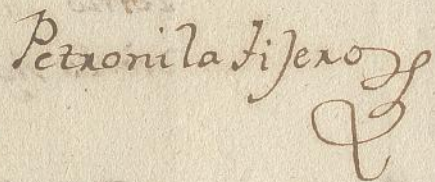 Petronila Jijero